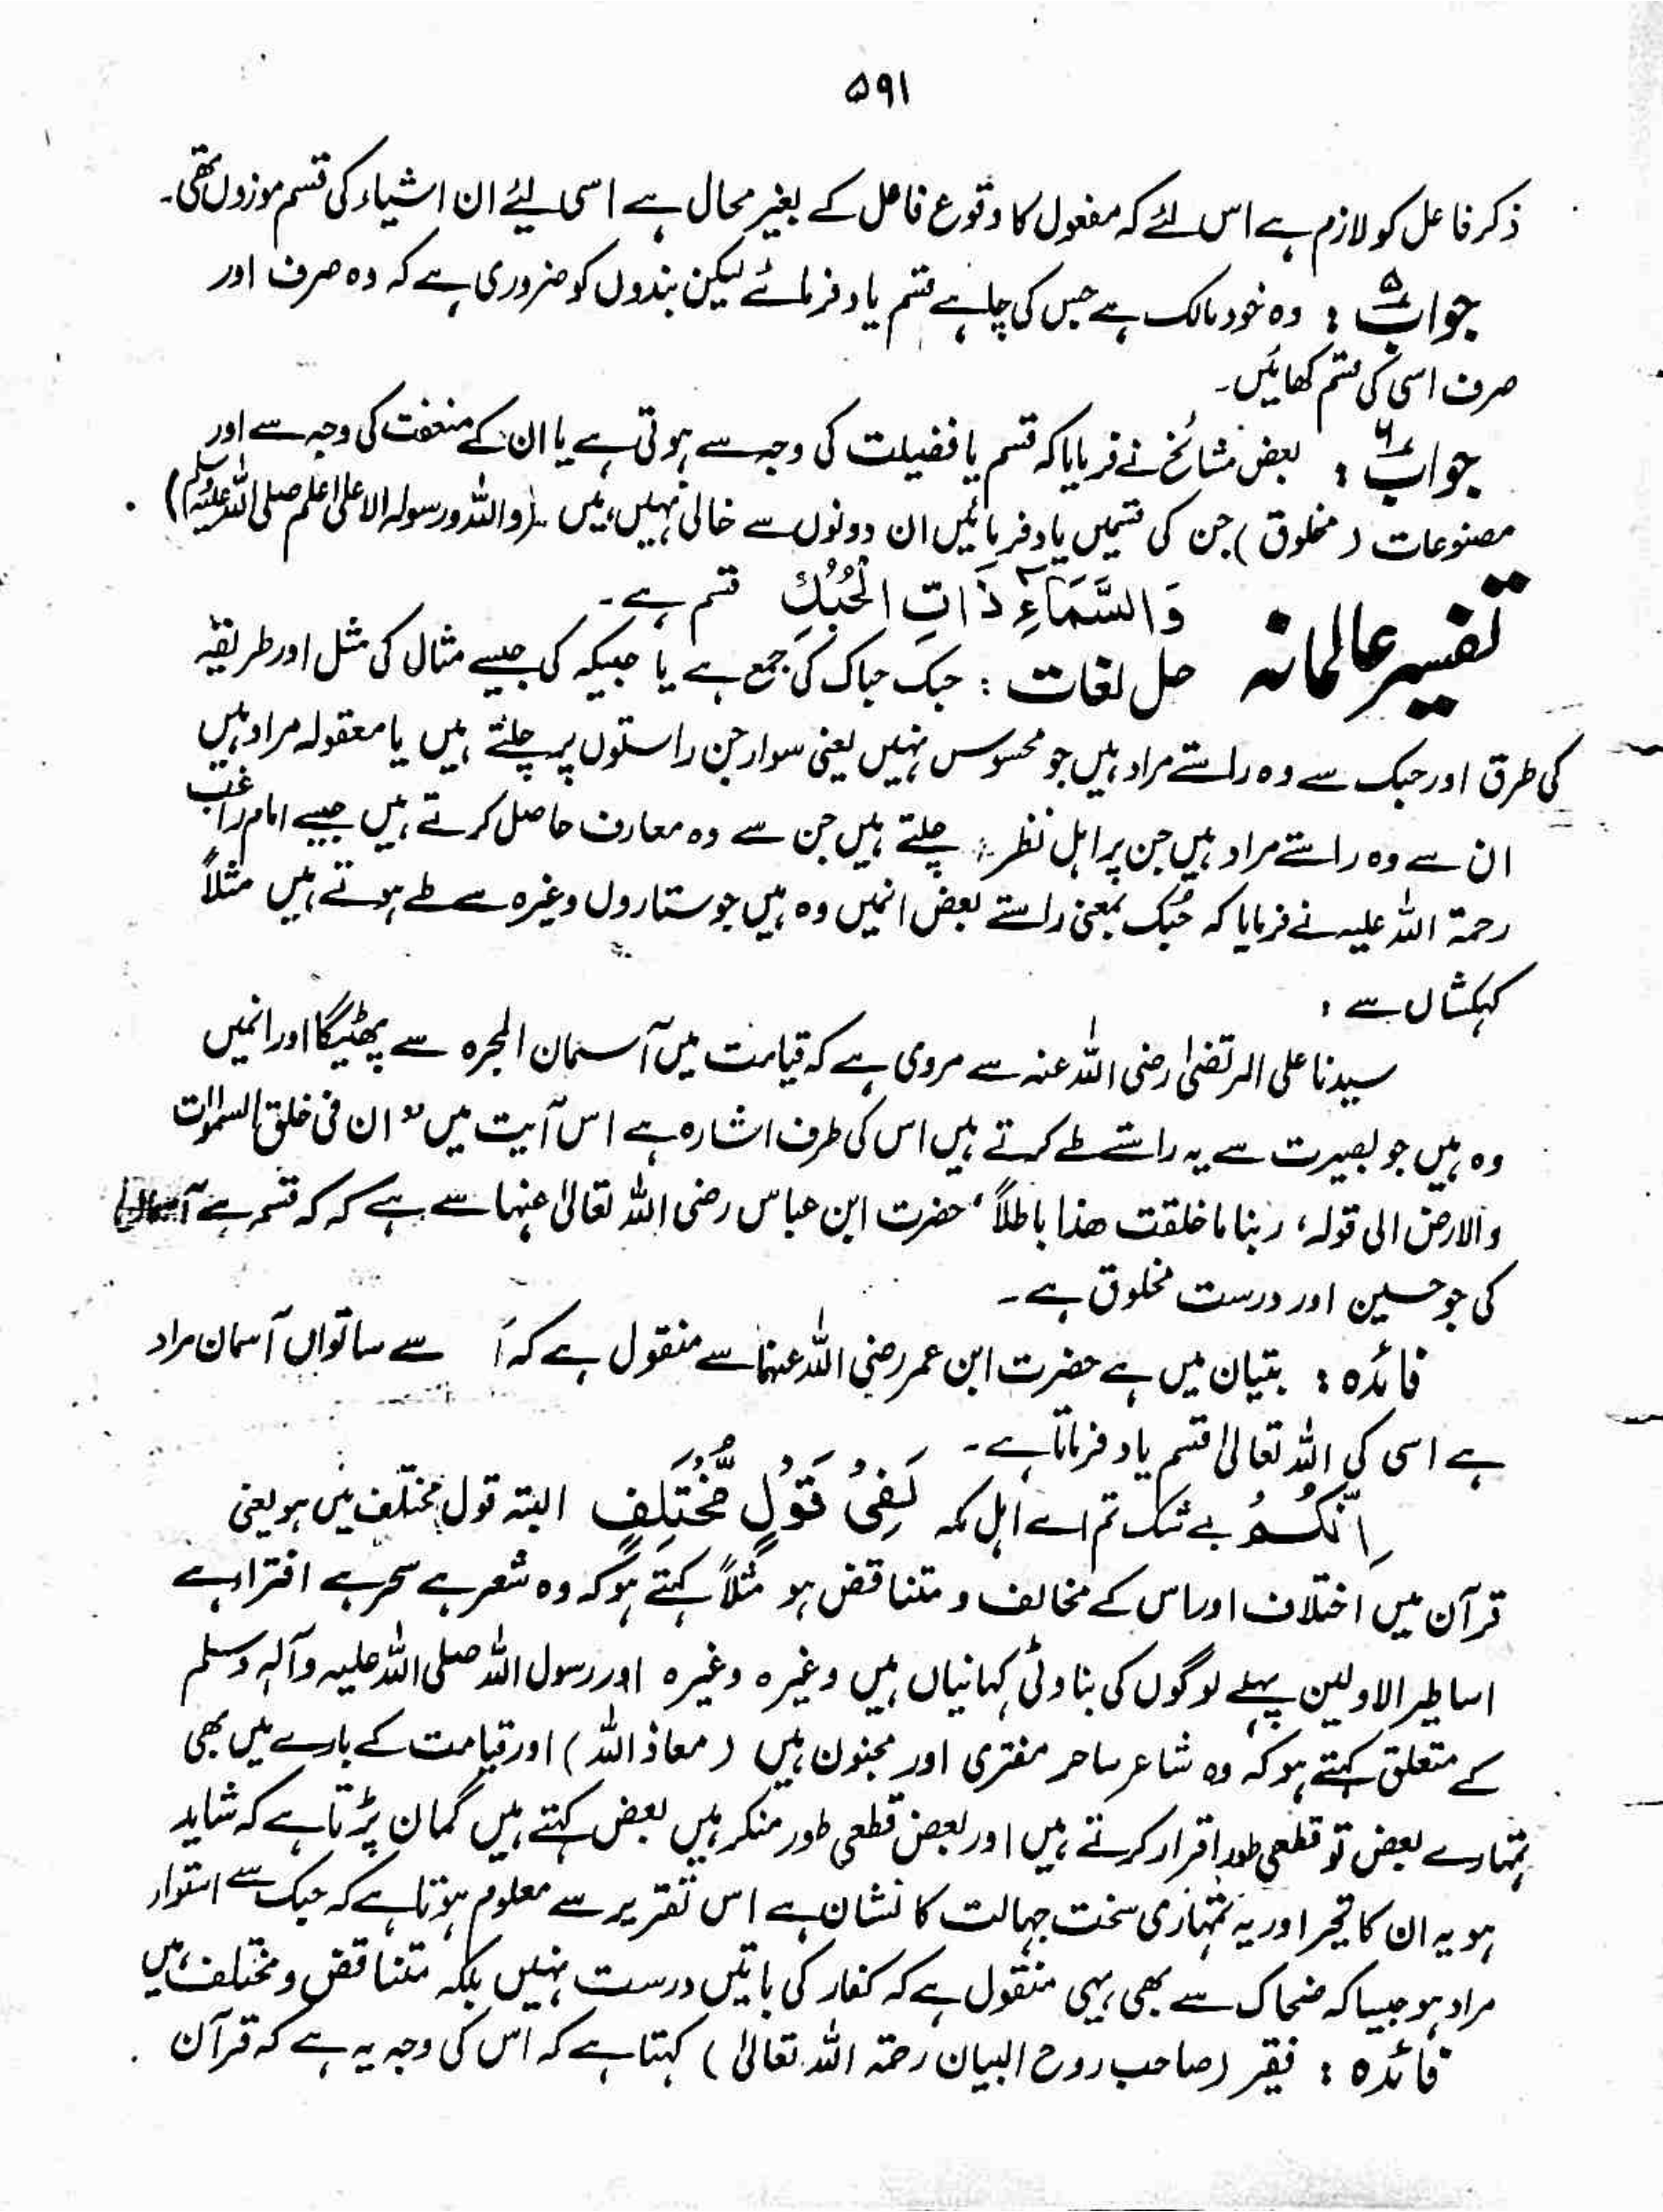 ۵۹۱
ذکر فاعل کو لازم ہے اس لئے کہ مفعول کا وقوع فاعل کے بغیر محال ہے اسی لیئے ان اشیاء کی قسم موزوں تھی۔
جواب ۵ : وہ خود مالک ہے جس کی چاہے قسم یاد فرمائے لیکن بندوں کو ضروری ہے کہ وہ صرف اور
صرف اسی کی قسم کھائیں۔
جواب ۶ : بعض مشائخ نے فرمایا کہ قسم یا فضیلت کی وجہ سے ہوتی ہے یا ان کے منفعت کی وجہ سے اور
مصنوعات (مخلوق) جن کی قسمیں یاد فرمائیں ان دونوں سے خالی نہیں ہیں۔ (واللہ ورسولہ الاعلیٰ اعلم صلی اللہ علیہ وسلم)
تفسیر عالمانہ وَالسَّمَآءِ ذَاتِ الْحُبُكِ قسم ہے۔
حل لغات : حبک حباک کی جمع ہے یا حبیکہ کی جیسے مثال کی مثل اور طریقہ
کی طرق اور حبک سے وہ راستے مراد ہیں جو محسوس نہیں یعنی سوار جن راستوں پر چلتے ہیں یا معقولہ مراد ہیں
ان سے وہ راستے مراد ہیں جن پر اہل نظر چلتے ہیں جن سے وہ معارف حاصل کرتے ہیں جیسے امام راغب
رحمۃ اللہ علیہ نے فرمایا کہ حُبُک بمعنی راستے بعض انمیں وہ ہیں جو ستاروں وغیرہ سے طے ہوتے ہیں مثلاً
کہکشاں سے ،
سیدنا علی المرتضیٰ رضی اللہ عنہ سے مروی ہے کہ قیامت میں آسمان المجرہ سے پھٹیگا اور انمیں
وہ ہیں جو بصیرت سے یہ راستے طے کرتے ہیں اس کی طرف اشارہ ہے اس آیت میں " ان فی خلق السمٰوات
والارض الی قولہ، ربنا ما خلقت ھذا باطلاً ‘ حضرت ابن عباس رضی اللہ تعالیٰ عنہما سے ہے کہ کہ قسم ہے آسمان
کی جو حسین اور درست مخلوق ہے۔
فائدہ : بتیان میں ہے حضرت ابن عمر رضی اللہ عنہما سے منقول ہے کہ سے ساتواں آسمان مراد
ہے اسی کی اللہ تعالیٰ قسم یاد فرماتا ہے۔
اِنَّكُمْ بے شک تم اے اہل مکہ لَفِىْ قَوْلٍ مُّخْتَلِفٍ البتہ قول مختلف میں ہو یعنی
قرآن میں اختلاف اور اس کے مخالف و متناقض ہو مثلاً کہتے ہو کہ وہ شعر ہے سحر ہے افترا ہے
اساطیر الاولین پہلے لوگوں کی بناوٹی کہانیاں ہیں وغیرہ وغیرہ اور رسول اللہ صلی اللہ علیہ وآلہ وسلم
کے متعلق کہتے ہو کہ وہ شاعر ساحر مفتری اور مجنون ہیں (معاذ اللہ) اور قیامت کے بارے میں بھی
تمہارے بعض تو قطعی طور اقرار کرتے ہیں اور بعض قطعی طور منکر ہیں بعض کہتے ہیں گمان پڑتا ہے کہ شاید
ہو یہ ان کا تحیر اور یہ تمہاری سخت جہالت کا نشان ہے اس تقریر سے معلوم ہوتا ہے کہ حبک سے استوار
مراد ہو جیسا کہ ضحاک سے بھی یہی منقول ہے کہ کفار کی باتیں درست نہیں بلکہ متناقض و مختلف ہیں
فائدہ : فقیر (صاحب روح البیان رحمۃ اللہ تعالیٰ) کہتا ہے کہ اس کی وجہ یہ ہے کہ قرآن